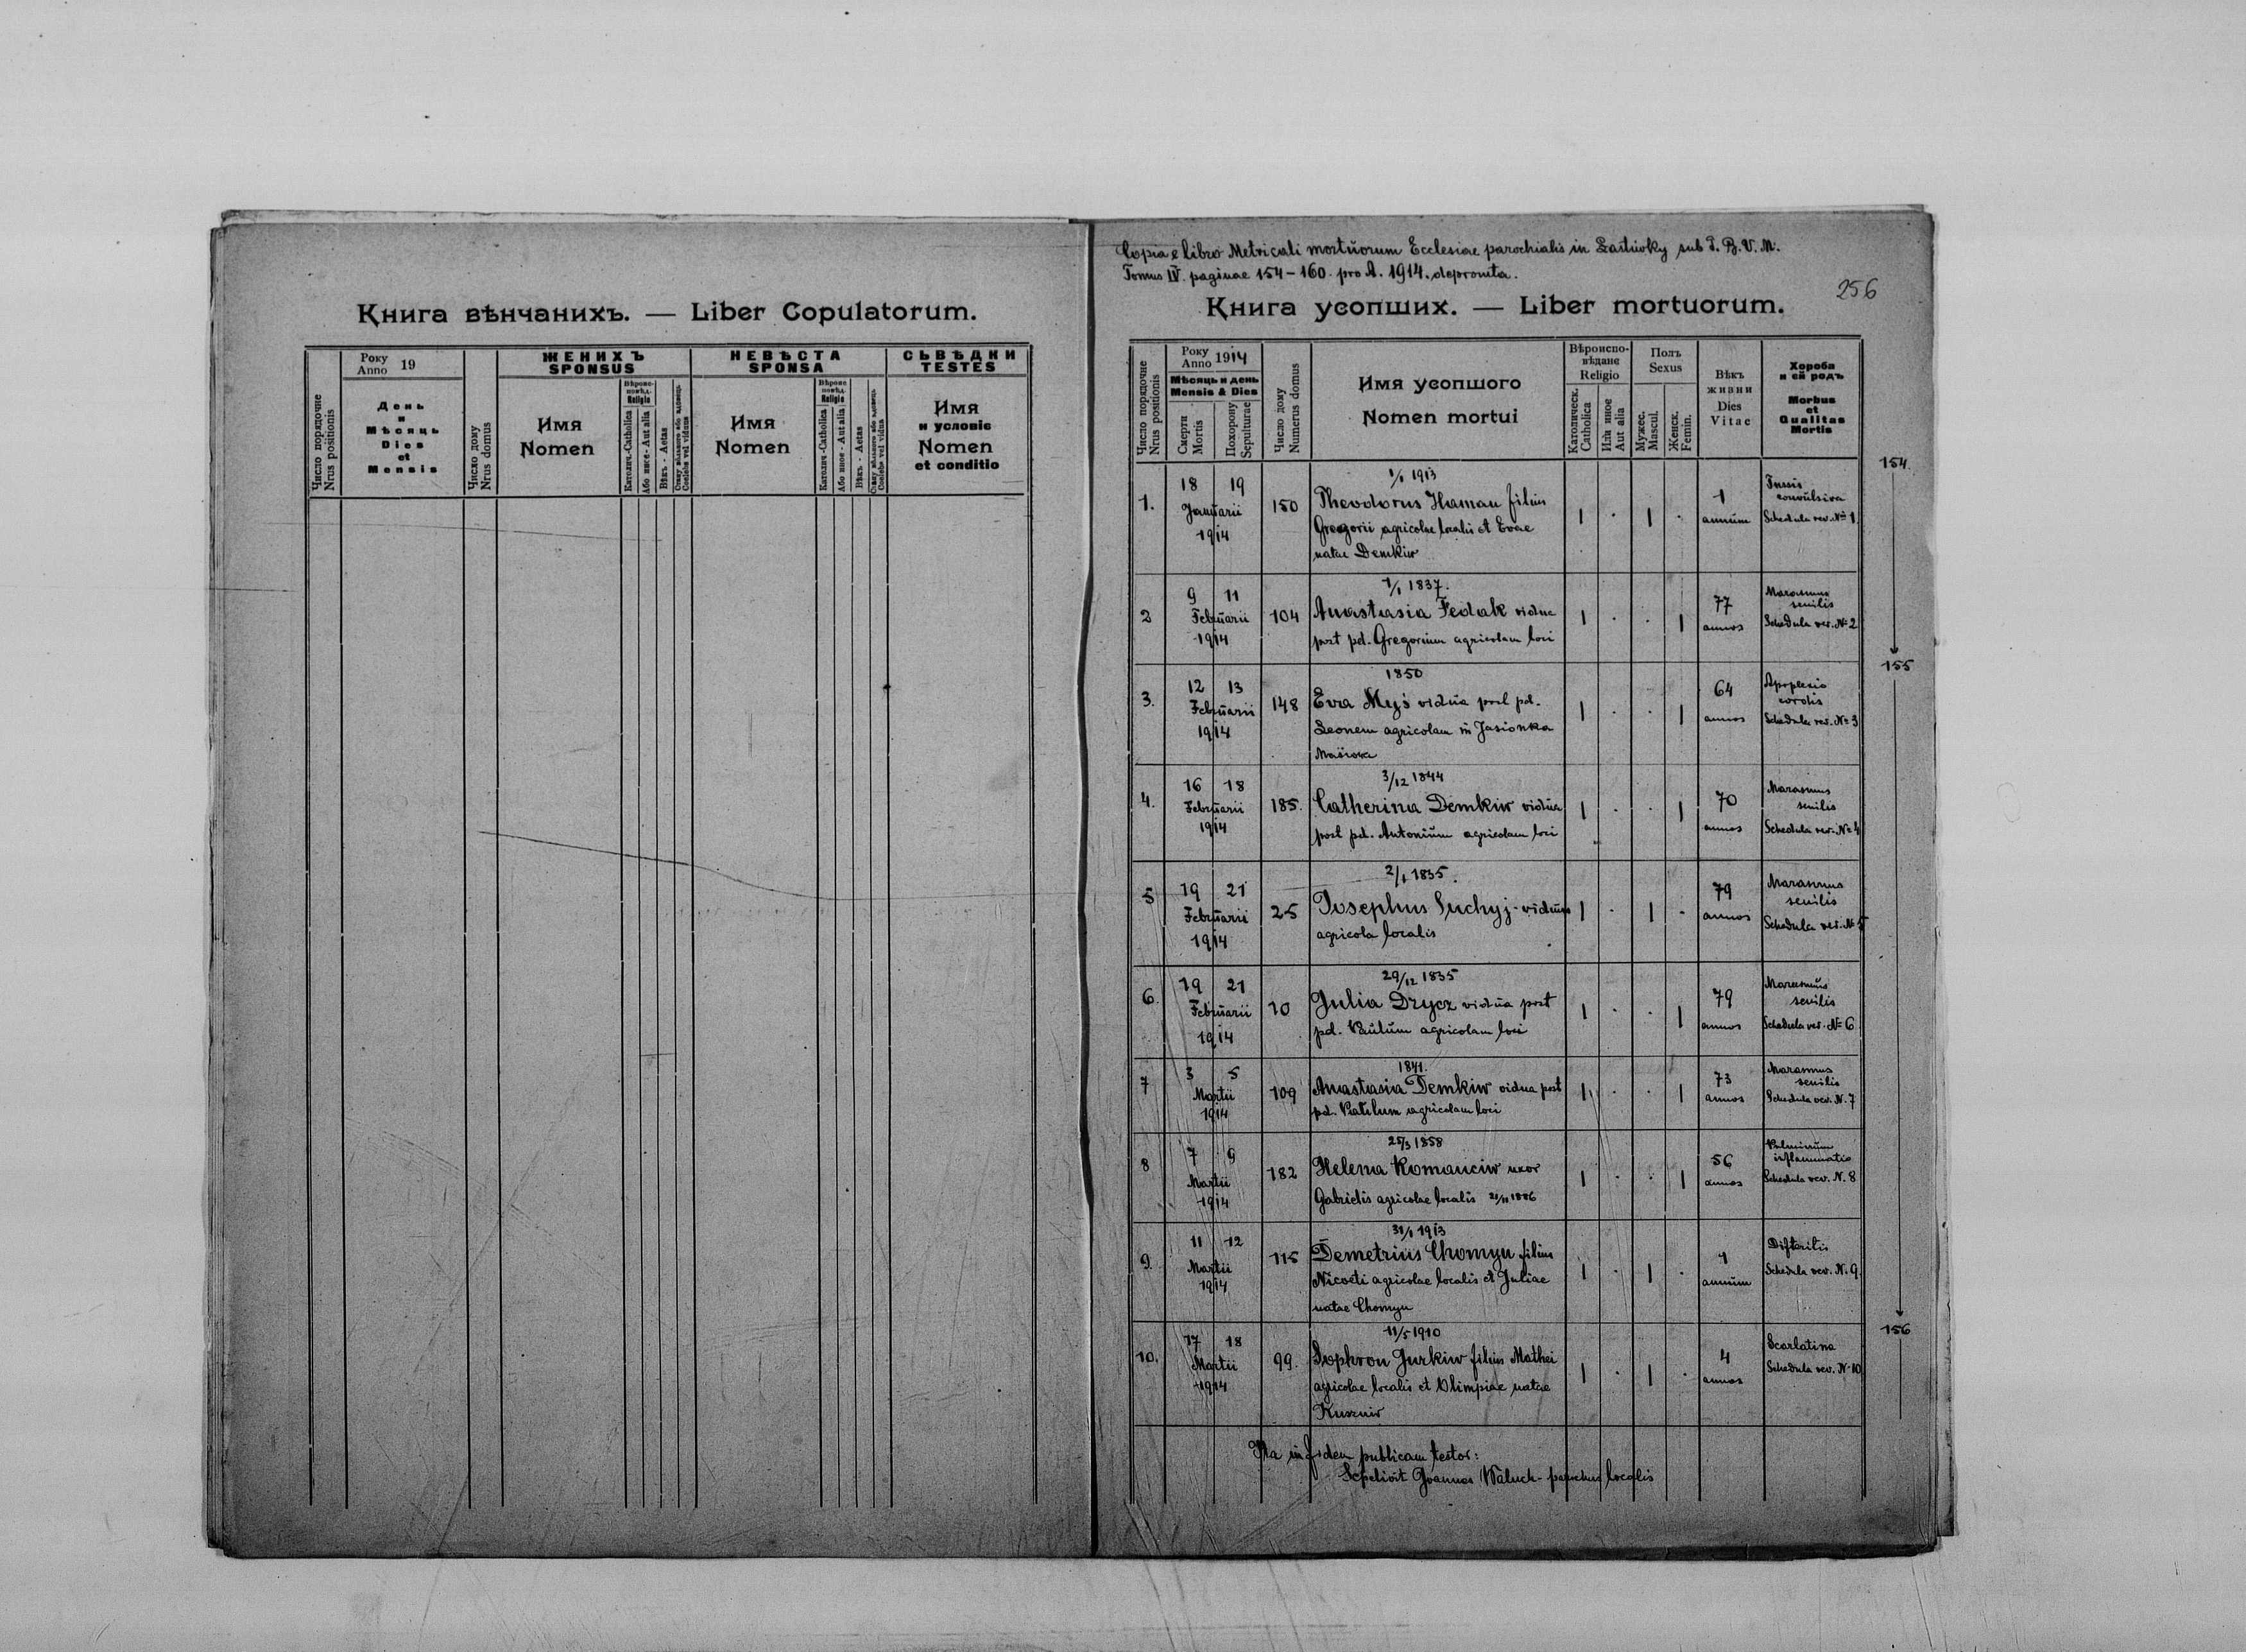 Книга вѣнчанихъ. — Liber Copulatorum.
Число порядочне
Nrus positionis
Року
Anno 19
День
и
Мѣсяць
Dies
et
Mensis
Число дому
Nrus domus
ЖЕНИХЪ
SPONSUS
Имя
Nomen
Religio
Католич.-Catholica
Або инсе-Aut alia
Вѣкъ - Aetas
Coelebs vel viduus
НЕВѢСТА
SPONSA
Имя
Nomen
Religio
Католич.-Catholica
Або иное-Aut alia
Вѣкъ - Aetas
Coelebs vel vidua
СЬВѢДКИ
TESTES
Имя
и условіє
Nomen
et conditio
Copia e libro Metricali mortuorum Ecclesiae parochialis in Lastiwky sub T. B. V. M.
Tomus IV. paginae 154-160. pro A. 1914. deprompta.
256
Книга усопших. — Liber mortuorum.
Число порядочне
Nrus positionis
Року
Anno 1914
Мѣсяць и день
Mensis & Dies
Смерти
Mortis
Похорону
Sepulturae
Число дому
Numerus domus
Имя усопшого
Nomen mortui
Вѣроиспо-
вѣдане
Religio
Католическ.
Catholica
Или иное
Aut alia
Полъ
Sexus
Мужес.
Mascul.
Женск.
Femin.
Вѣкъ
жизни
Dies
Vitae
Хороба
и єй родъ
Morbus
et
Qualitas
Mortis
154
1/1 1913
1. 18 19 Januarii 1914 150 Theodorus Haman filius 1 · 1 · 1 annum Tussis convulsiva
Gregorii agricolae localis et Evae Schedula rev. No 1
natae Demkiw
1/1 1837.
2 9 11 Februarii 1914 104 Anastasia Fedak vidua 1 · · 1 77 annos Marasmus senilis
post pd. Gregorium agricolam loci Schedula rev. No 2
155
1850
3. 12 13 Februarii 1914 148 Eva Myś vidua post pd. 1 · · 1 64 annos Apoplexia cordis
Leonem agricolam in Jasionka Schedula rev. No 3
3/12 1844
4. 16 18 Februarii 1914 185. Catherina Demkiw vidua 1 · · 1 70 annos Marasmus senilis
post pd. Antonium agricolam loci Schedula rev. No 4
2/1 1835.
5 19 21 Februarii 1914 25 Josephus Suchyj viduus 1 · 1 · 79 annos Marasmus senilis
agricola localis Schedula rev. No 5
29/12 1835
6. 19 21 Februarii 1914 10 Julia Drycz vidua post 1 · · 1 79 annos Marasmus senilis
pd. Paulum agricolam loci Schedula rev. No 6
1841.
7 3 5 Martii 1914 109 Anastasia Demkiw vidua post 1 · · 1 73 annos Marasmus senilis
pd. Paulum agricolam loci Schedula rev. N. 7
25/3 1858
8 7 9 Martii 1914 182 Helena Romanciw uxor 1 · · 1 56 annos Pulmonum inflammatio
Gabrielis agricolae localis 21/11 1886 Schedula rev. N. 8
31/1 1913
9. 11 12 Martii 1914 115 Demetrius Chomyn filius 1 · 1 · 1 annum Difteritis
Nicoeti agricolae localis et Juliae Schedula rev. N. 9.
natae Chomyn
156
11/5 1910
10. 17 18 Martii 1914 99. Sophron Jurkiw filius Mathei 1 · 1 · 4 annos Scarlatina
agricolae localis et Olimpiae natae Schedula rev. N. 10
Kuzniw
Ita in fidem publicam testor:
Sepelivit Joannes Waluch - parochus localis